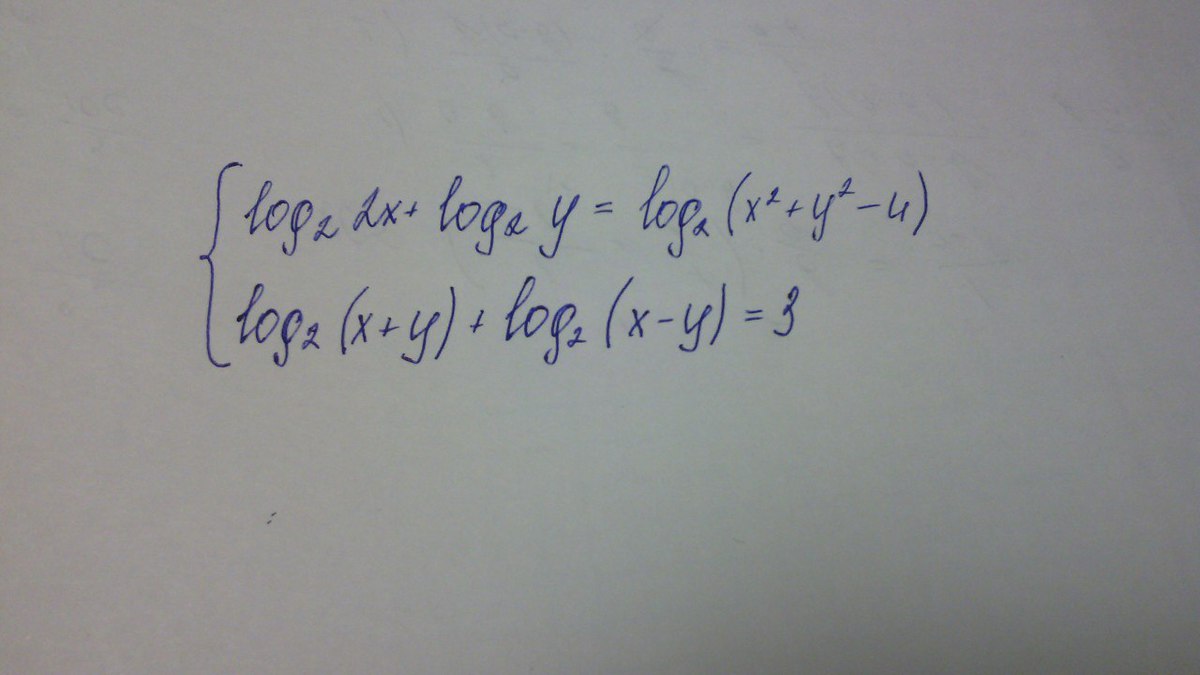 log₂ 2x + log₂ y = log₂ (x² + y² - 4)
log₂ (x + y) + log₂ (x - y) = 3